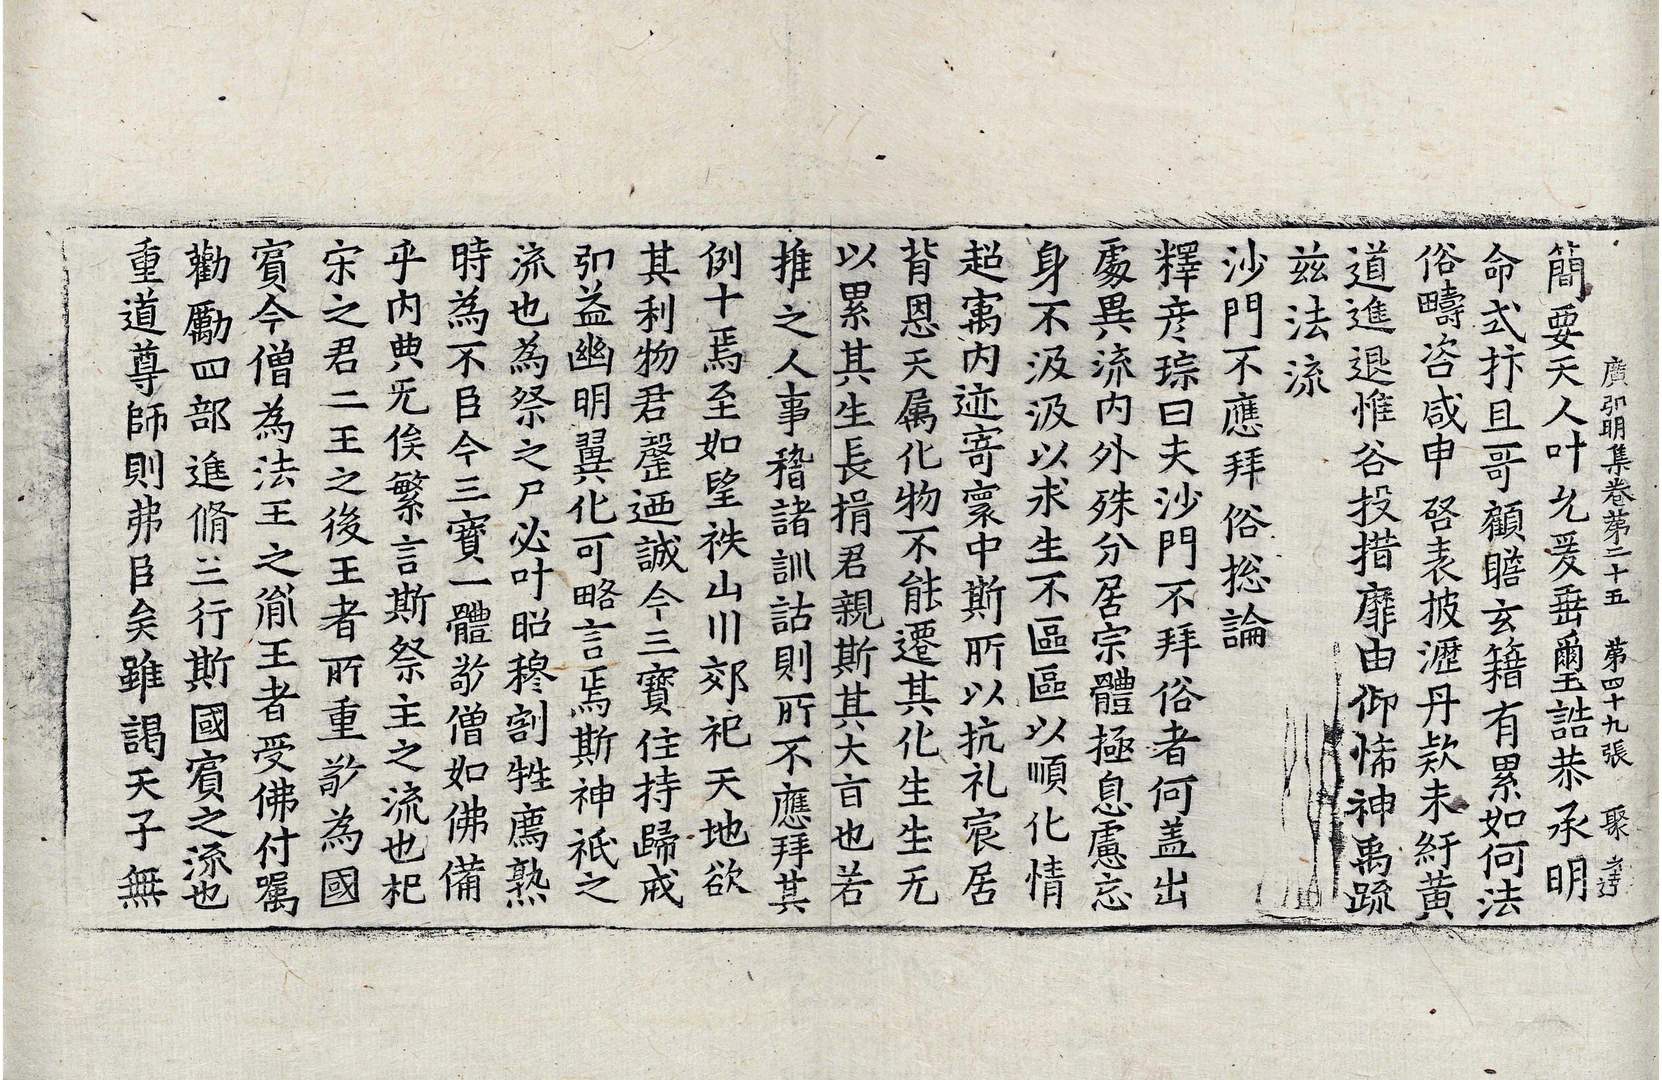 廣弘明集卷苐二十五 苐四十九張 聚
簡要天人叶允爰垂璽誥恭承明
命式抃且哥顧瞻玄籍有累如何法
俗疇咨咸申啓表披瀝丹欵未紆黄
道進退惟谷投措靡由仰悕神禹䟽
兹法流
沙門不應拜俗捴論
釋彦琮曰夫沙門不拜俗者何盖出
處異流内外殊分居宗體極息慮忘
身不汲汲以求生不區區以順化情
超㝢内迹寄寰中斯所以抗礼宸居
背恩天属化物不能遷其化生生无
以累其生長捐君親斯其大旨也若
推之人事稽諸訓詁則所不應拜其
例十焉至如望秩山川郊祀天地欲
其利物君罄廼誠今三寶住持歸戒
弘益幽明翼化可略言焉斯神祇之
流也為祭之尸必叶昭穆割牲薦熟
時為不臣今三寶一體敬僧如佛備
乎内典旡俟繁言斯祭主之流也杞
宋之君二王之後王者所重敬為國
賔今僧為法王之胤王者受佛付囑
勸勵四部進脩三行斯國賔之流也
重道尊師則弗臣矣雖謁天子無